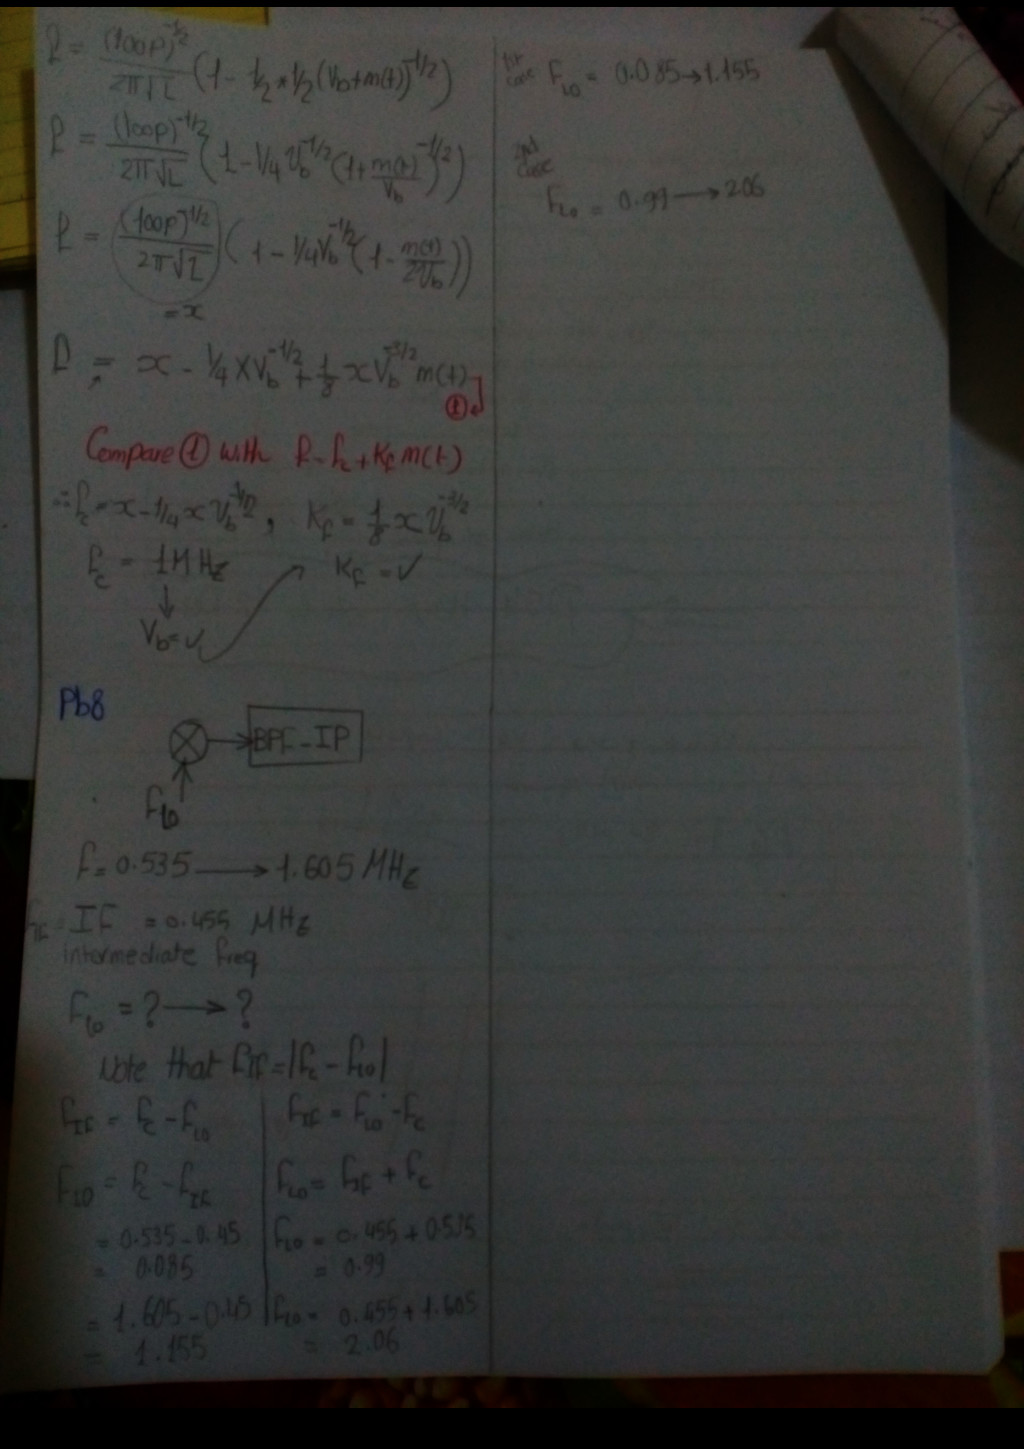 f = (100p)^-1/2 / 2π√L (1 - 1/2 * 1/2 (Vb + m(t))^-1/2)
f = (100p)^-1/2 / 2π√L (1 - 1/4 Vb^-1/2 (1 + m(t)/Vb)^-1/2))
f = (100p)^1/2 / 2π√L (1 - 1/4 Vb^-1/2 (1 - m(t)/2Vb))
= x
f = x - 1/4 x Vb^-1/2 + 1/8 x Vb^-3/2 m(t)
①
Compare ① with f = fc + Kf m(t)
∴ fc = x - 1/4 x Vb^-1/2, Kf = 1/8 x Vb^-3/2
fc = 1 MHz Kf = ✓
Vb = ✓
Pb8
BPF - IF
flo
f = 0.535 → 1.605 MHz
fIF = IF = 0.455 MHz
intermediate freq
Flo = ? → ?
Note that fIF = |fc - flo|
fIF = fc - fLO
FLO = fc - fIF
= 0.535 - 0.45
= 0.085
= 1.605 - 0.45
= 1.155
fIF = FLO - fc
fLO = fIF + fc
fLO = 0.455 + 0.535
= 0.99
fLO = 0.455 + 1.605
= 2.06
1st
case FLO = 0.085 → 1.155
2nd
case
FLO = 0.99 → 2.06